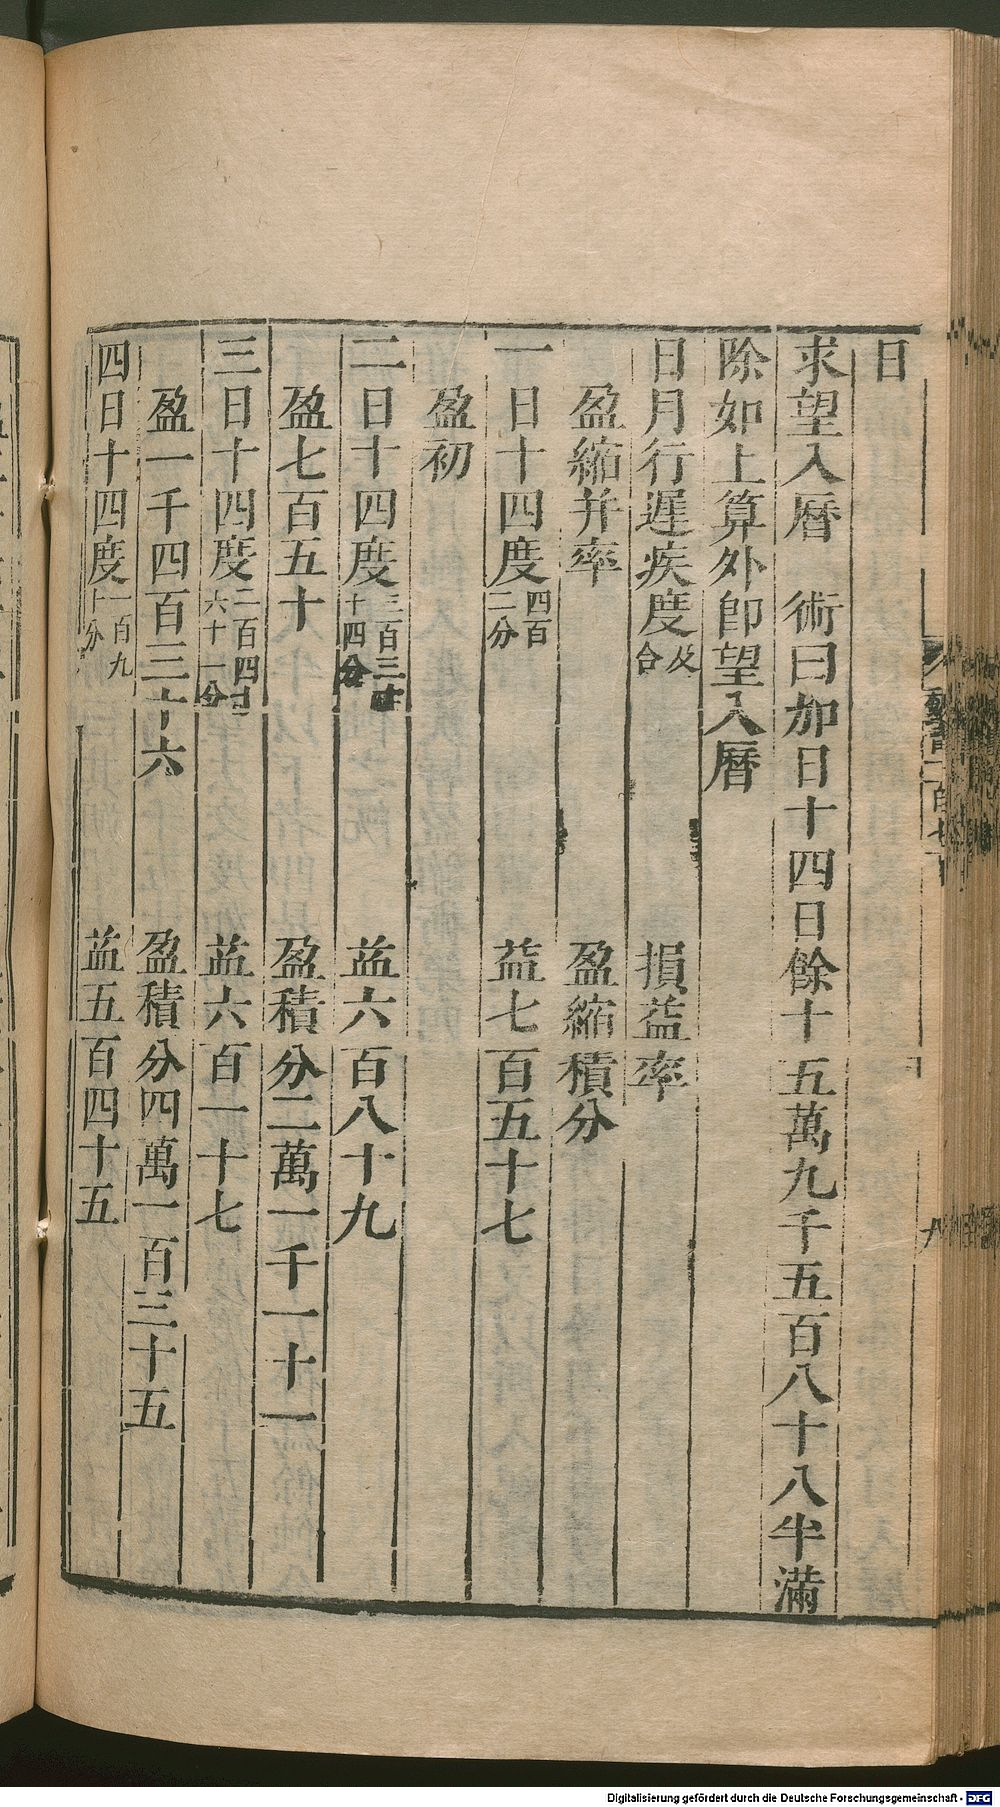 日
求望入曆 術曰加日十四日餘十五萬九千五百八十八半滿
除如上算外卽望入曆
日月行遲疾度及合 損益率
盈縮并率 盈縮積分
一日十四度四百二分 益七百五十七
盈初
二日十四度三百三十四分 益六百八十九
盈七百五十 盈積分二萬一千一十一
三日十四度二百四十六十一分 益六百一十七
盈一千四百三十六 盈積分四萬一百三十五
四日十四度一百九十分 益五百四十五
八
Digitalisierung gefördert durch die Deutsche Forschungsgemeinschaft - DFG